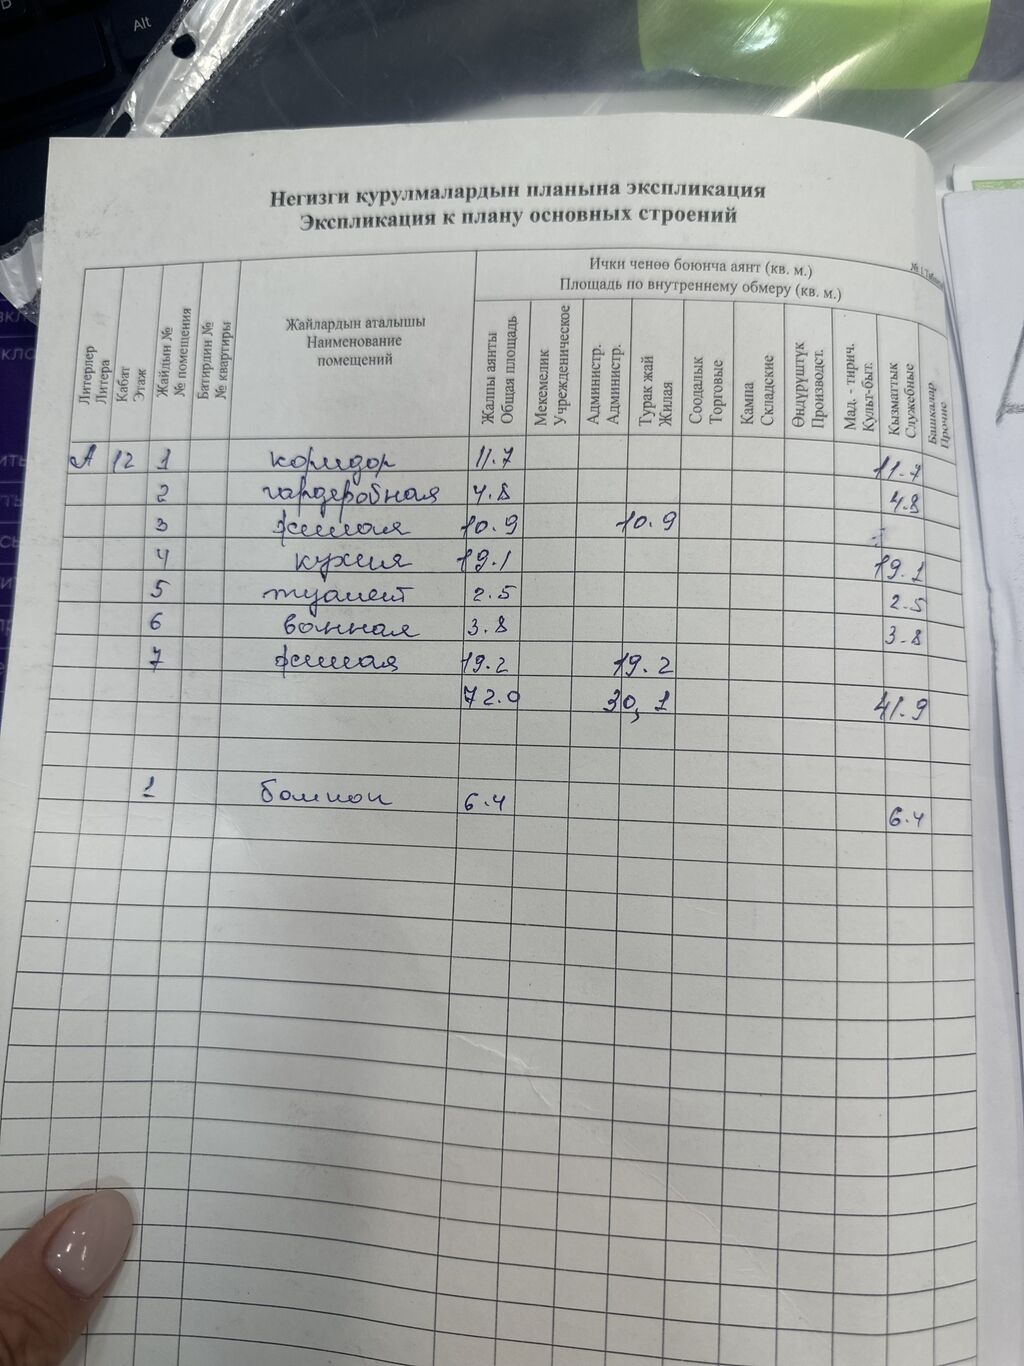 Alt
Негизги курулмалардын планына экспликация
Экспликация к плану основных строений
Литерлер
Литера
Кабат
Этаж
Жайдын №
№ помещения
Батирдин №
№ квартиры
Жайлардын аталышы
Наименование
помещений
Ички ченөө боюнча аянт (кв. м.)
Площадь по внутреннему обмеру (кв. м.)
Жалпы аянты
Общая площадь
Мекемелик
Учрежденическое
Администр.
Администр.
Турак жай
Жилая
Соодалык
Торговые
Кампа
Складские
Өндүрүштүк
Производст.
Мад. - тирич.
Культ-быт.
Кызматтык
Служебные
Башкалар
Прочие
А 12 1 коридор 11.7 11.7
2 гардеробная 4.8 4.8
3 жилая 10.9 10.9
4 кухня 19.1 19.1
5 туалет 2.5 2.5
6 ванная 3.8 3.8
7 жилая 19.2 19.2
72.0 30,1 41.9
1 балкон 6.4 6.4